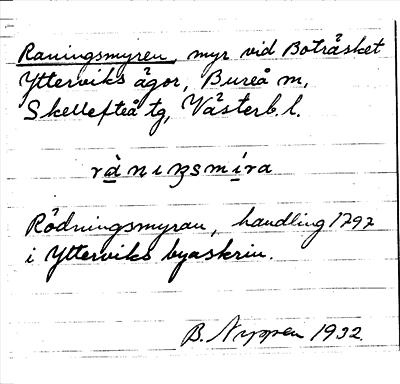 Raningsmyren, myr vid Boträsket
Ytterviks ägor, Bureå m,
Skellefteå tg, Västerb. l.
rà̲nıŋsmí̲ra
Rödningsmyran, handling 1797
i Ytterviks byaskrin.
B. Nyppen 1932.